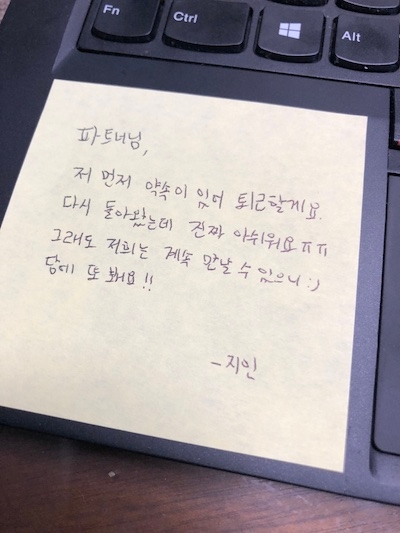 Fn
Ctrl
Alt
파트너님,
저 먼저 약속이 있어 퇴근할게요.
다시 돌아왔는데 진짜 아쉬워요ㅠㅠ
그래도 저희는 계속 만날 수 있으니 :)
담에 또 봬요!!
-지인